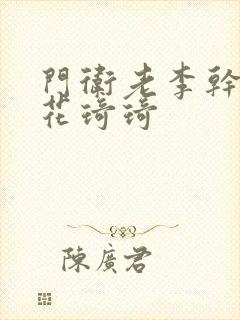 門衛老李幹
花琦琦
陳廣君